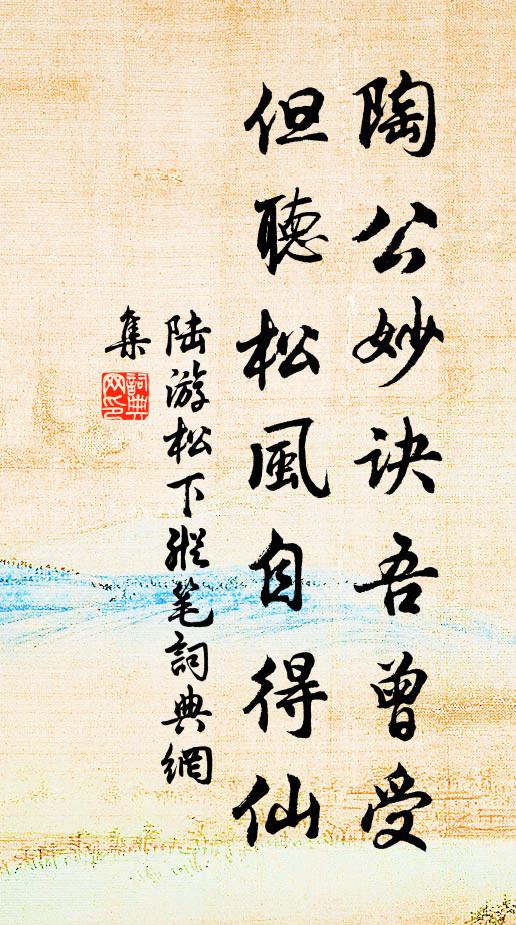 陶公妙诀吾曾受
但聽松風自得仙
陆游松下縱笔詞典網
集
詞典
网印